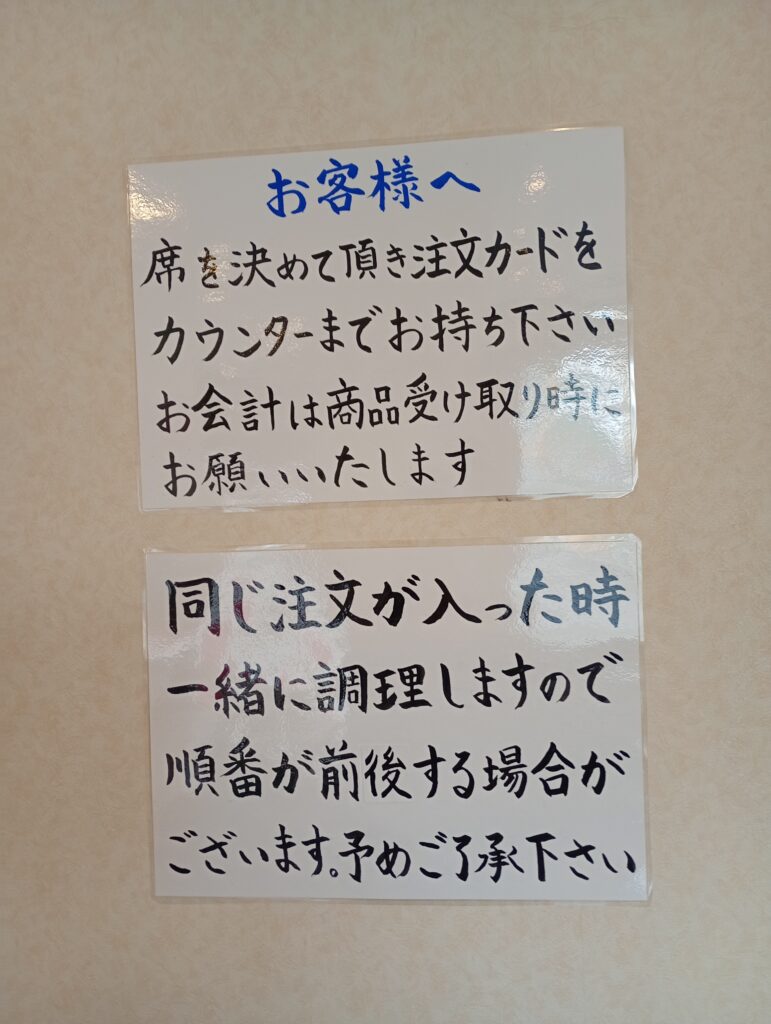 お客様へ
席を決めて頂き注文カードを
カウンターまでお持ち下さい
お会計は商品受け取り時に
お願いいたします
同じ注文が入った時
一緒に調理しますので
順番が前後する場合が
ございます。予めご了承下さい